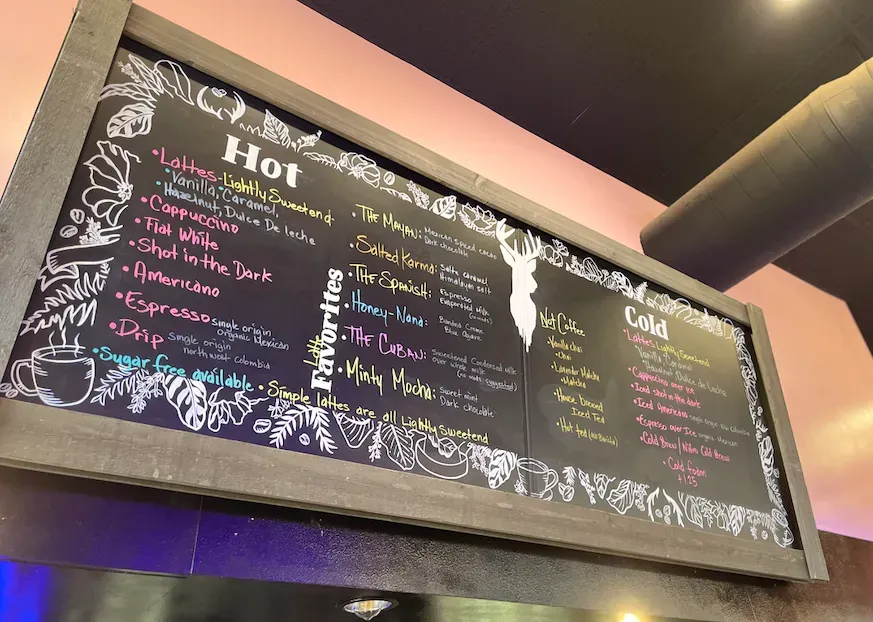 Hot
• Lattes - Lightly Sweetend
• Vanilla • Caramel,
• Hazelnut, Dulce De leche
• Cappuccino
• Flat White
• Shot in the Dark
• Americano
• Espresso single origin
organic Mexican
• Drip single origin
northwest colombia
• Sugar free available
• Simple lattes are all Lightly Sweetend
Latte
Favorites
• THE MAYAN: Mexican spiced cacao
Dark chocolate
• Salted Karma: Salte caramel
Himalayan salt
• THE SPANISH: Espresso
Evaporated milk
• Honey-Nana:
Blue Agave
• THE CUBAN: Sweetened Condensed milk
over whole milk
suggested)
• Minty Mocha: Sweet mint
Dark chocolate
Not Coffee
• Vanilla chai
• Chai
• Lavender Matcha
• Matcha
• House brewed
Iced Tea
• Hot tea
Cold
• Lattes Lightly Sweetend
Vanilla Caramel
Hazelnut Dulce de Leche
• Cappuccino over ice
• Iced shot in the dark
• Iced Americano single origin
• Espresso over Ice organic mexican
• Cold Brew / Nitro Cold Brew
• Cold foam
+1.25